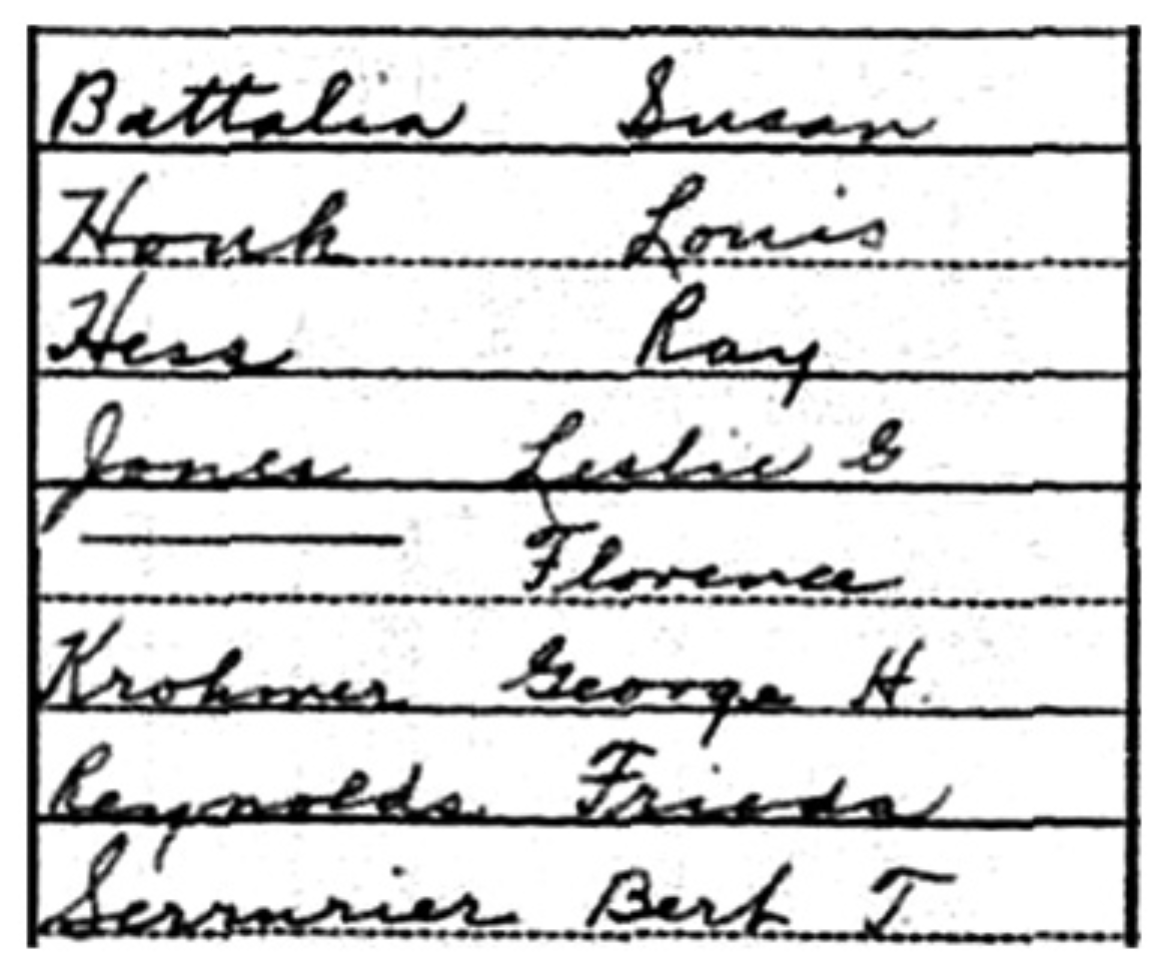 Battalia Susan
Houk Louis
Hess Ray
Jones Leslie G
—— Florence
Krohmer George H.
Reynolds Frieda
Serrurier Bert T.